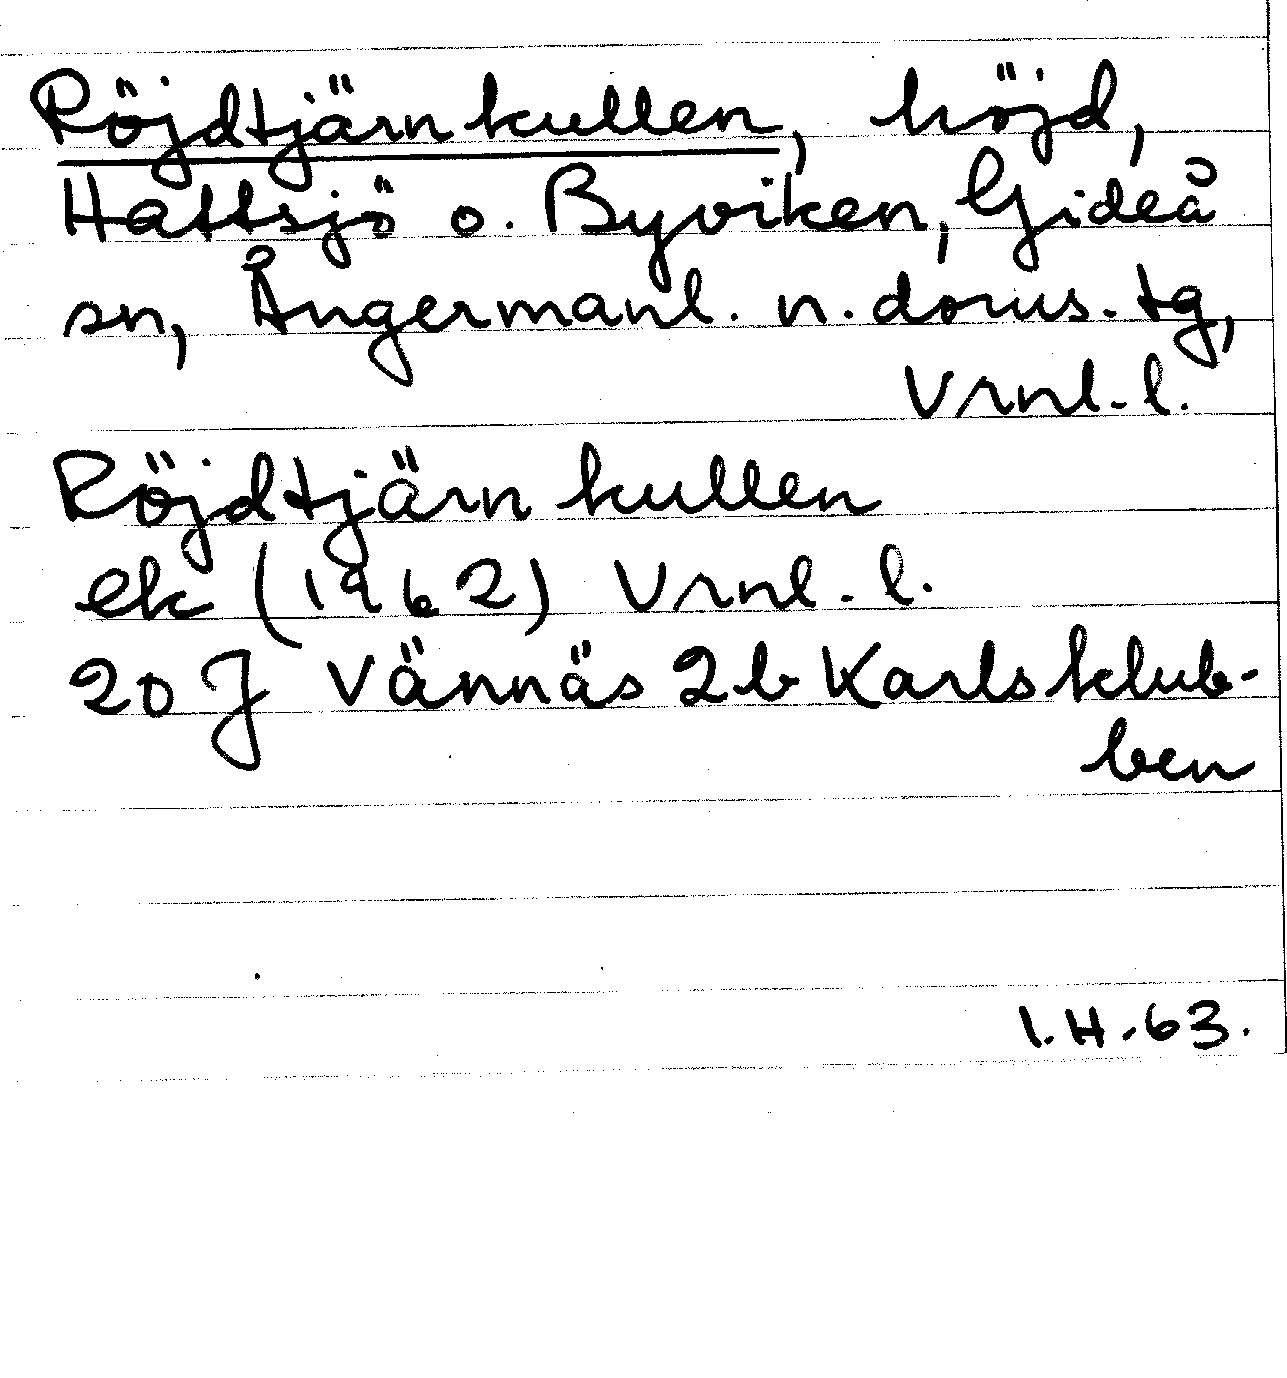 Röjdtjärnkullen, höjd,
Hattsjö o. Byviken, Gideå
sn, Ångermanl. n. doms. tg,
Vrnl. l.
Röjdtjärnkullen
ek (1962) Vrnl. l.
20 J Vännäs 2b Karlsklub-
ben
I.H.63.